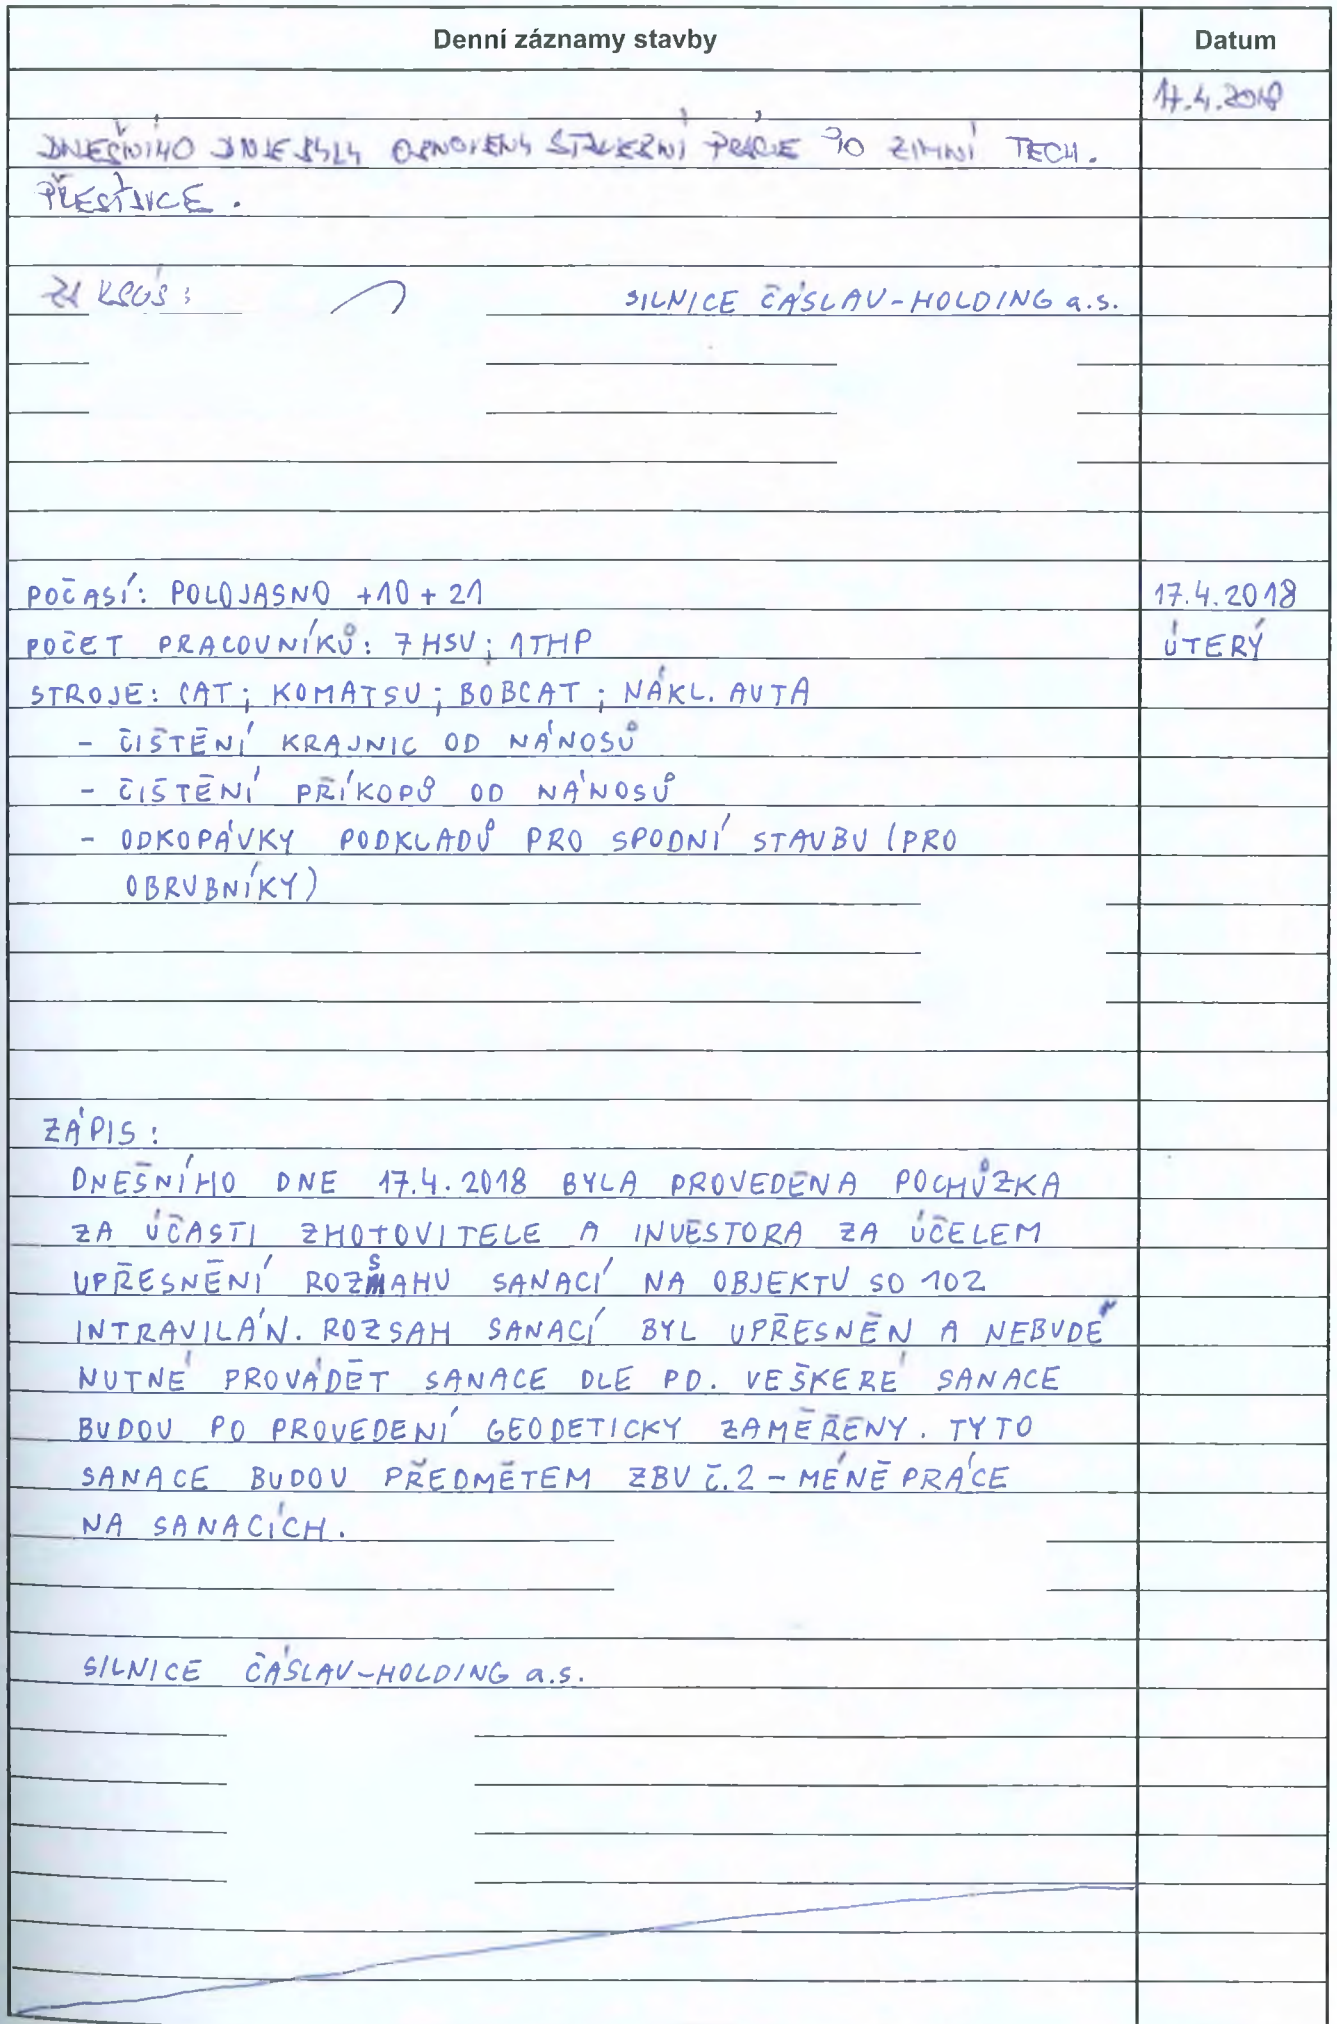 Denní záznamy stavby
Datum
17.4.2018
DNEŠNÍHO DNE BYLY OBNOVENY STAVEBNÍ PRÁCE PO ZIMNÍ TECH.
PŘESTÁVCE.
ZA KSÚS:
SILNICE ČÁSLAV-HOLDING a.s.
POČASÍ: POLOJASNO +10 + 21
17.4.2018
POČET PRACOVNÍKŮ: 7 HSV; 1THP
ÚTERÝ
STROJE: CAT; KOMATSU; BOBCAT; NÁKL. AUTA
- ČIŠTĚNÍ KRAJNIC OD NÁNOSŮ
- ČIŠTĚNÍ PŘÍKOPŮ OD NÁNOSŮ
- ODKOPÁVKY PODKLADŮ PRO SPODNÍ STAVBU (PRO
OBRUBNÍKY)
ZÁPIS:
DNEŠNÍHO DNE 17.4.2018 BYLA PROVEDENA POCHŮZKA
ZA ÚČASTI ZHOTOVITELE A INVESTORA ZA ÚČELEM
UPŘESNĚNÍ ROZSAHU SANACÍ NA OBJEKTU SO 102
INTRAVILÁN. ROZSAH SANACÍ BYL UPŘESNĚN A NEBUDE
NUTNÉ PROVÁDĚT SANACE DLE PD. VEŠKERÉ SANACE
BUDOU PO PROVEDENÍ GEODETICKY ZAMĚŘENY. TYTO
SANACE BUDOU PŘEDMĚTEM ZBV č.2 - MÉNĚ PRÁCE
NA SANACÍCH.
SILNICE ČÁSLAV-HOLDING a.s.